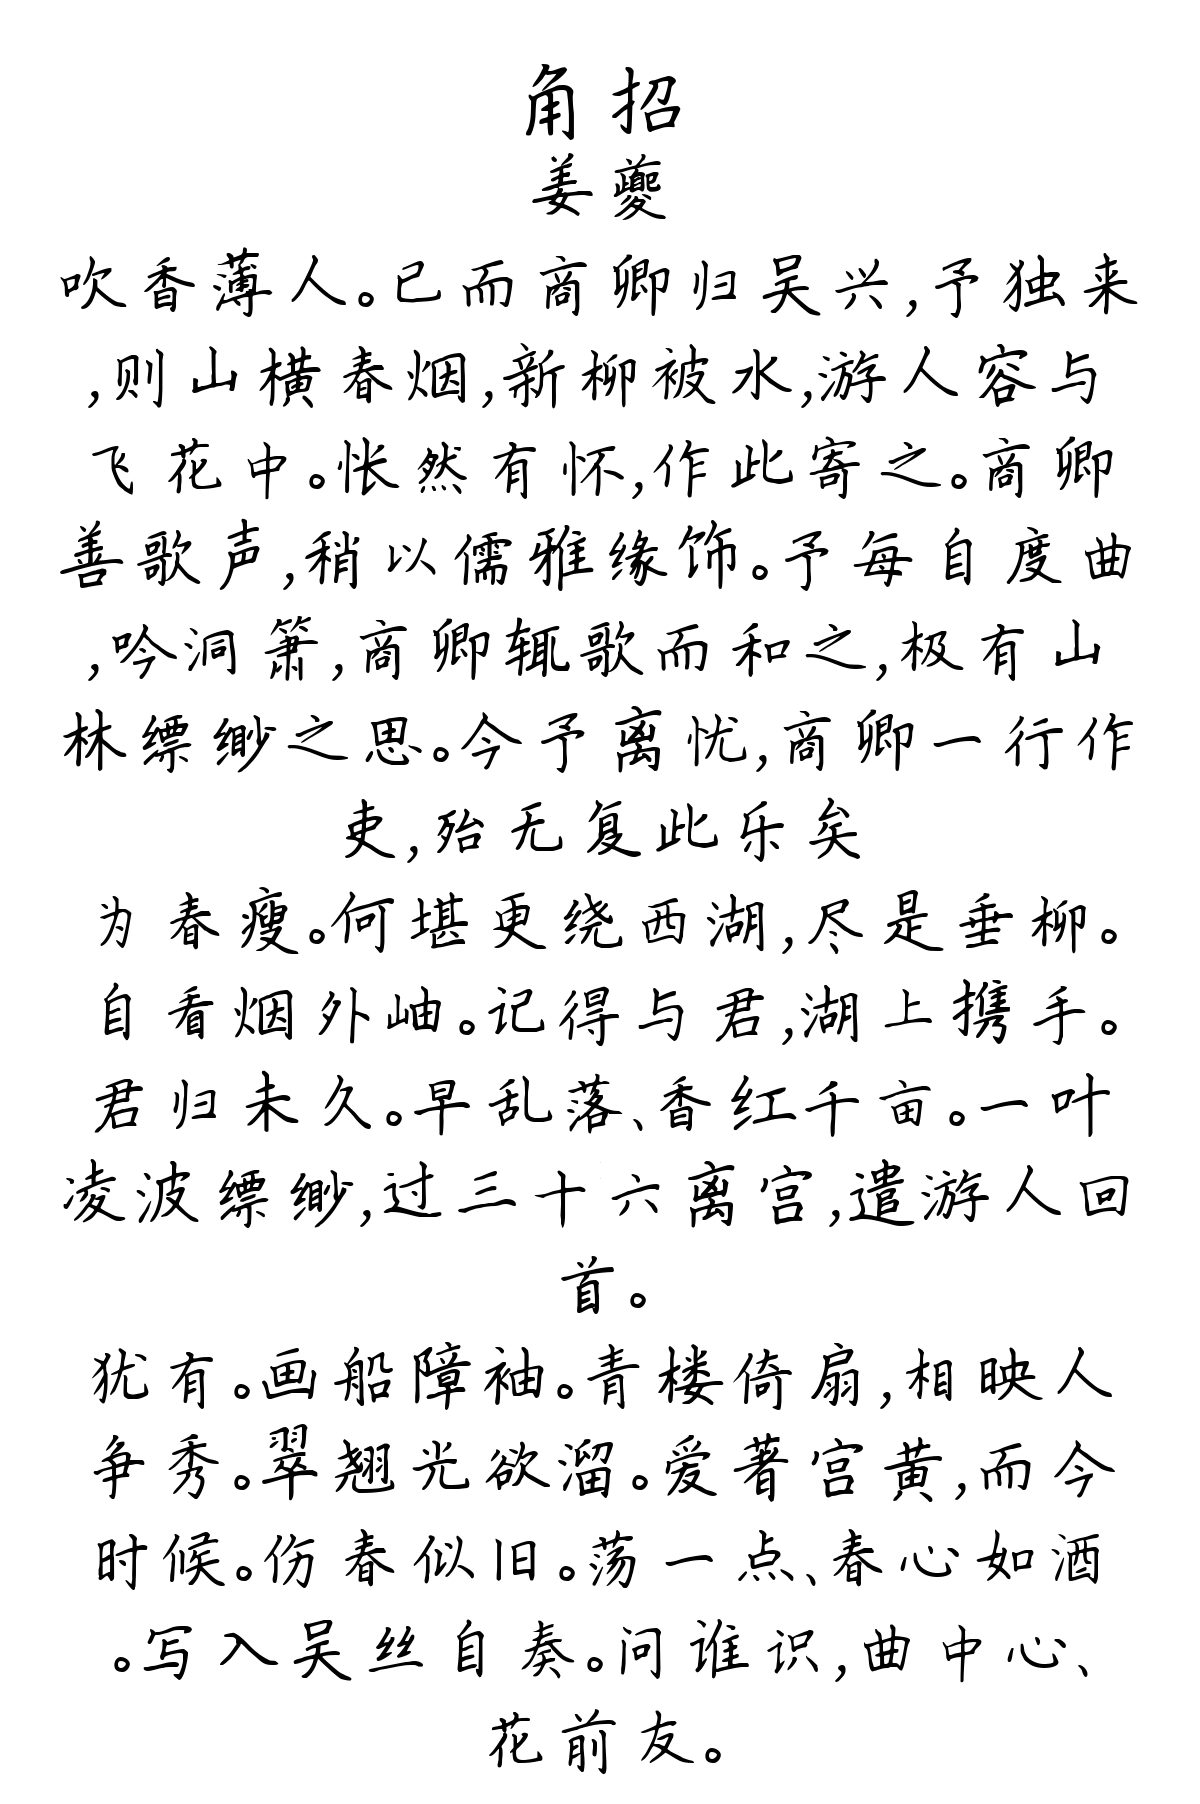 角招
姜夔
吹香薄人。已而商卿归吴兴,予独来
,则山横春烟,新柳被水,游人容与
飞花中。怅然有怀,作此寄之。商卿
善歌声,稍以儒雅缘饰。予每自度曲
,吟洞箫,商卿辄歌而和之,极有山
林缥缈之思。今予离忧,商卿一行作
吏,殆无复此乐矣
为春瘦。何堪更绕西湖,尽是垂柳。
自看烟外岫。记得与君,湖上携手。
君归未久。早乱落、香红千亩。一叶
凌波缥缈,过三十六离宫,遣游人回
首。
犹有。画船障袖。青楼倚扇,相映人
争秀。翠翘光欲溜。爱著宫黄,而今
时候。伤春似旧。荡一点、春心如酒
。写入吴丝自奏。问谁识,曲中心、
花前友。